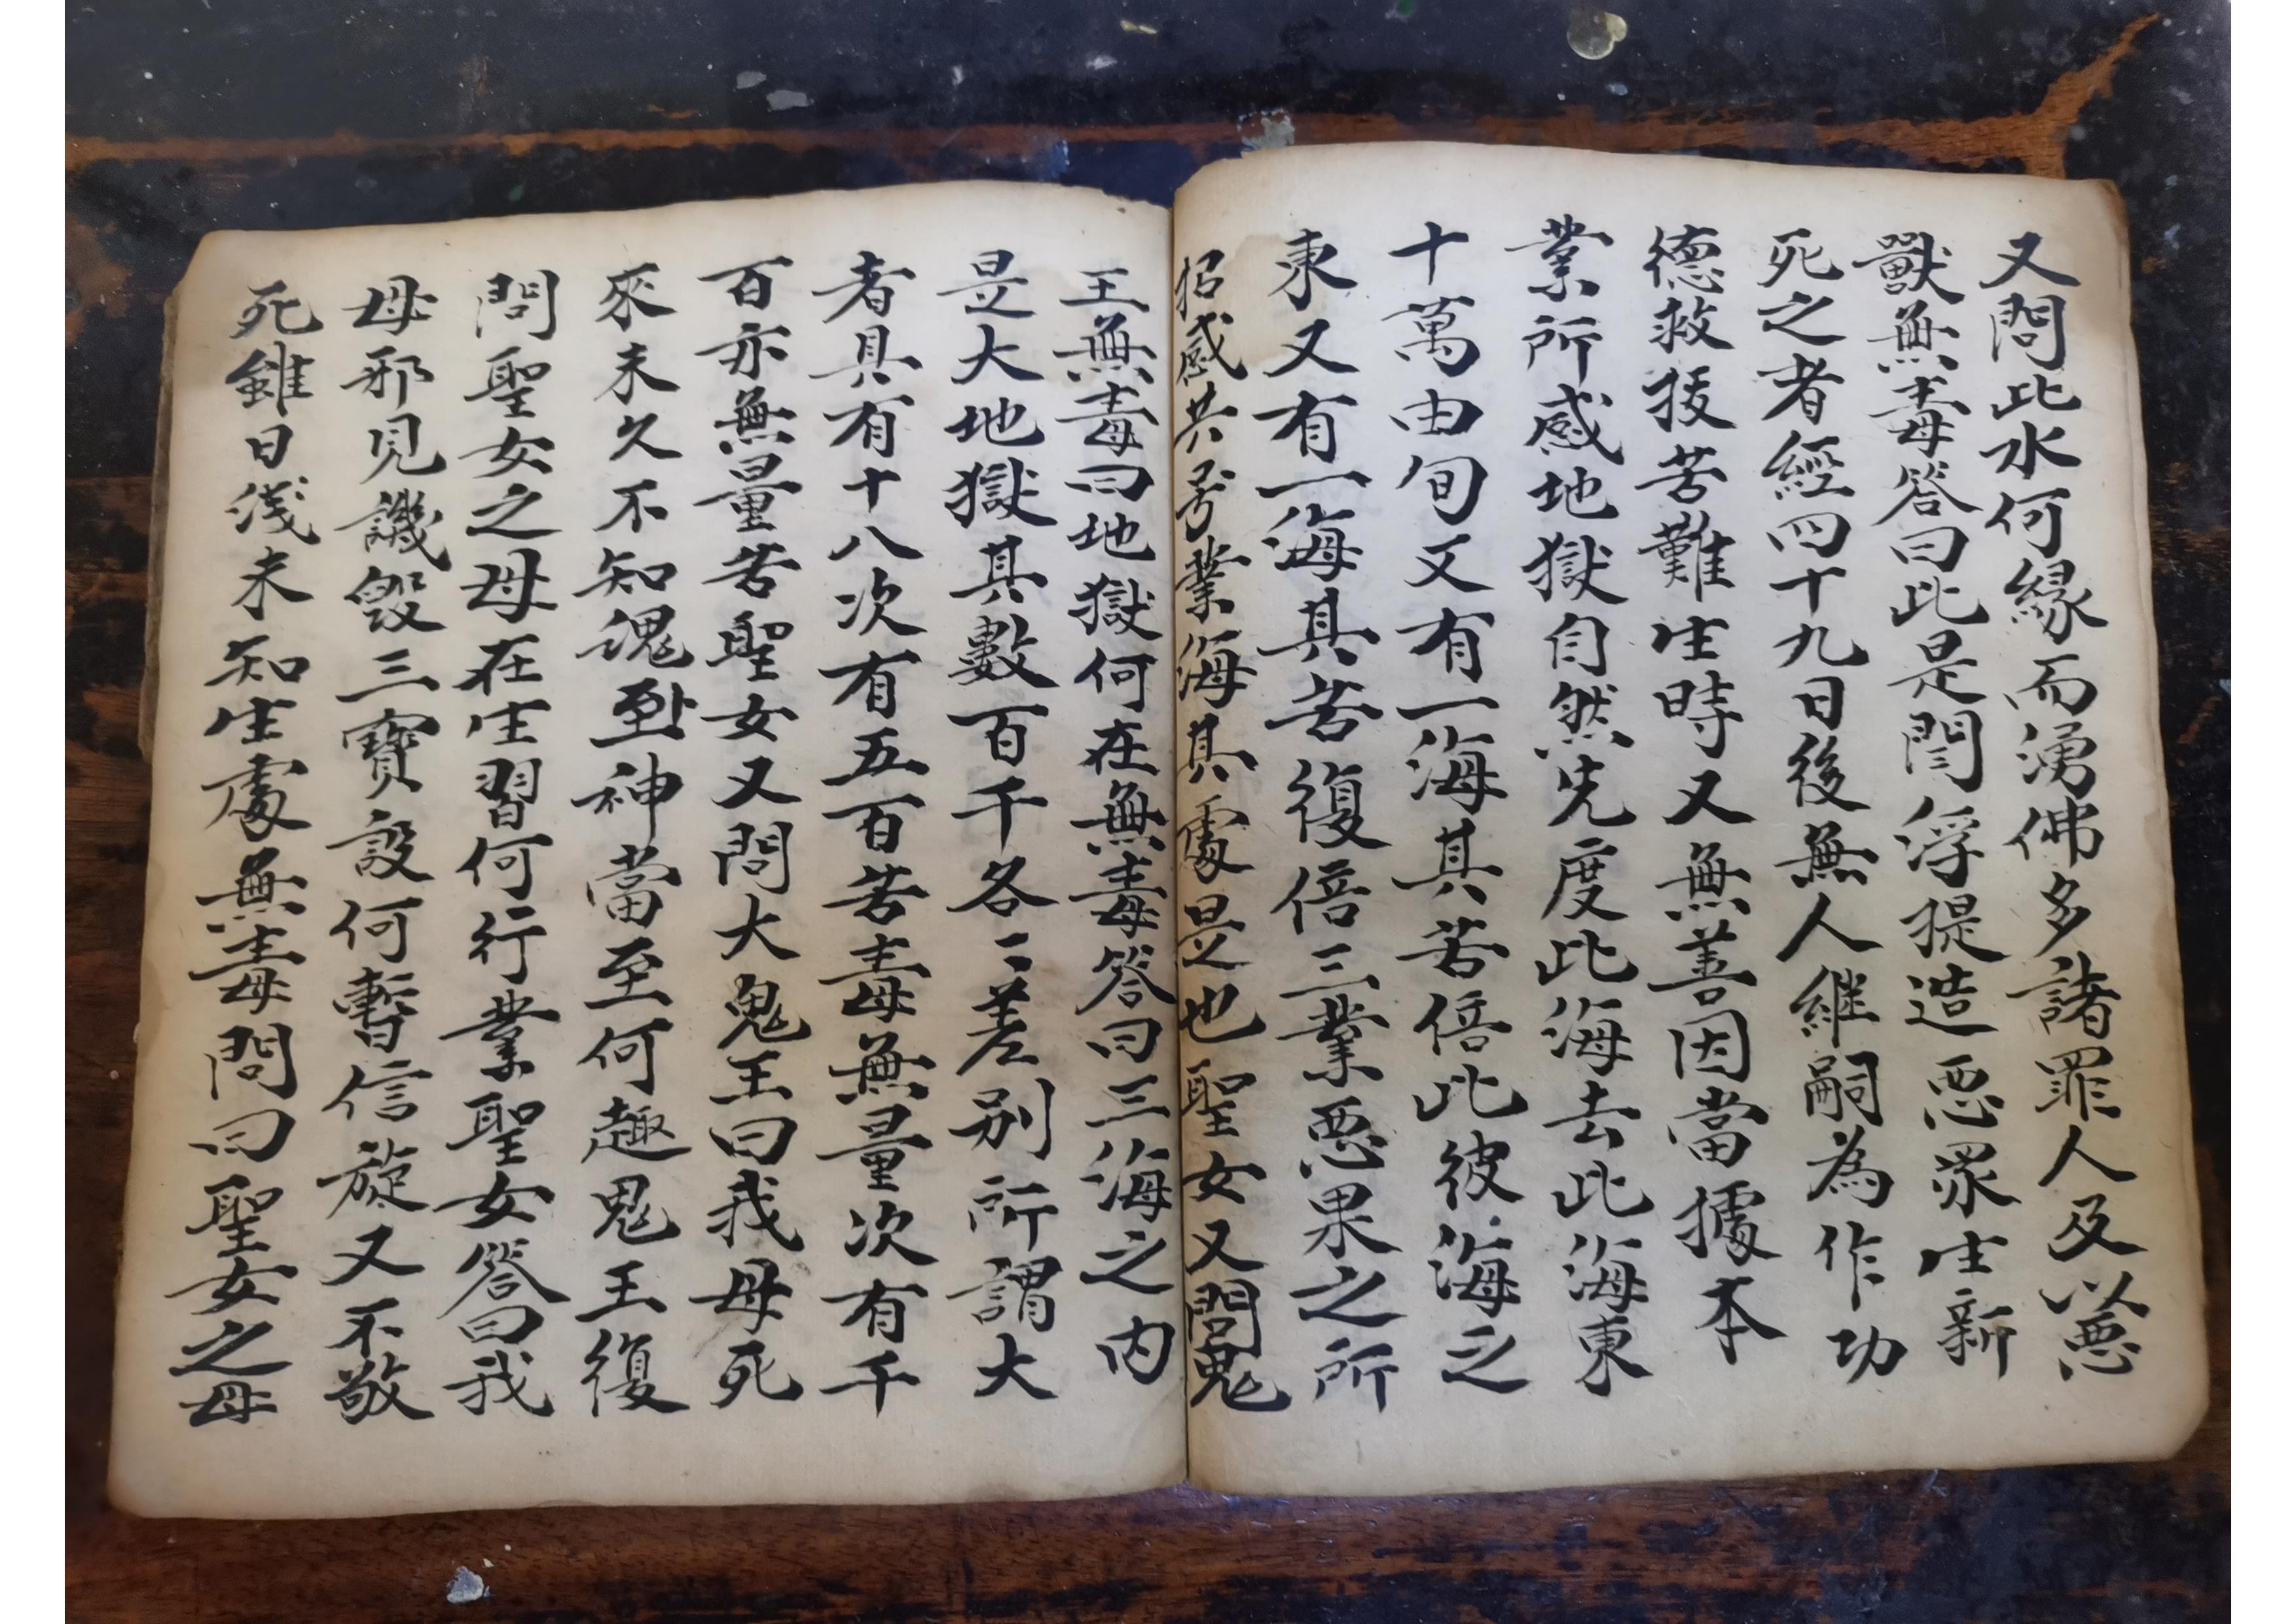 又問此水何緣而湧佛多諸罪人及以惡
獸無毒答曰此是閻浮提造惡眾生新
死之者經四十九日後無人繼嗣為作功
德救拔苦難生時又無善因當據本
業所感地獄自然先度此海去此海東
十萬由旬又有一海其苦倍此彼海之
東又有一海其苦復倍三業惡果之所
招感共号業海其處是也聖女又問鬼
王無毒曰地獄何在無毒答曰三海之内
是大地獄其數百千各〻差別所謂大
者具有十八次有五百苦毒無量次有千
百亦無量苦聖女又問大鬼王曰我母死
來未久不知魂神當至何趣鬼王復
問聖女之母在生習何行業聖女答曰我
母邪見譏毀三寶設何暫信旋又不敬
死雖日淺未知生處無毒問曰聖女之母